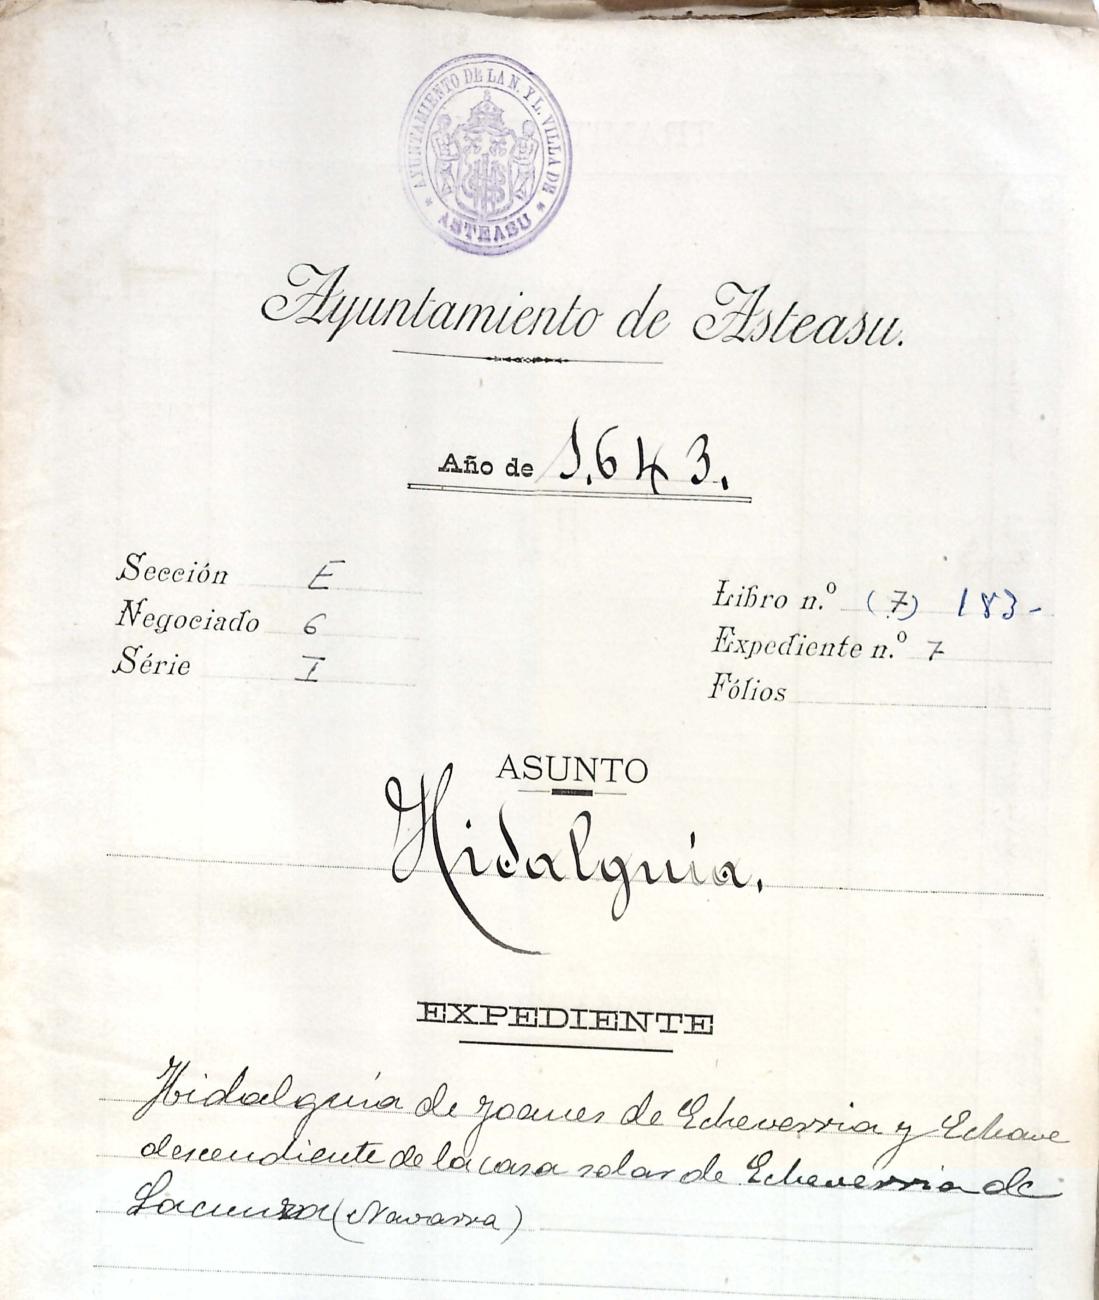 * AYUNTAMIENTO DE LA N. Y L. VILLA DE *
ASTEASU
Ayuntamiento de Asteasu.
Año de 1.643.
Sección E
Negociado 6
Série I
Libro n.º (7) 183-
Expediente n.º 7
Fólios
ASUNTO
Hidalguía.
EXPEDIENTE
Hidalguía de Joanes de Echeverria y Echave
descendiente de la casa solar de Echeverria de
Lacunza (Navarra)